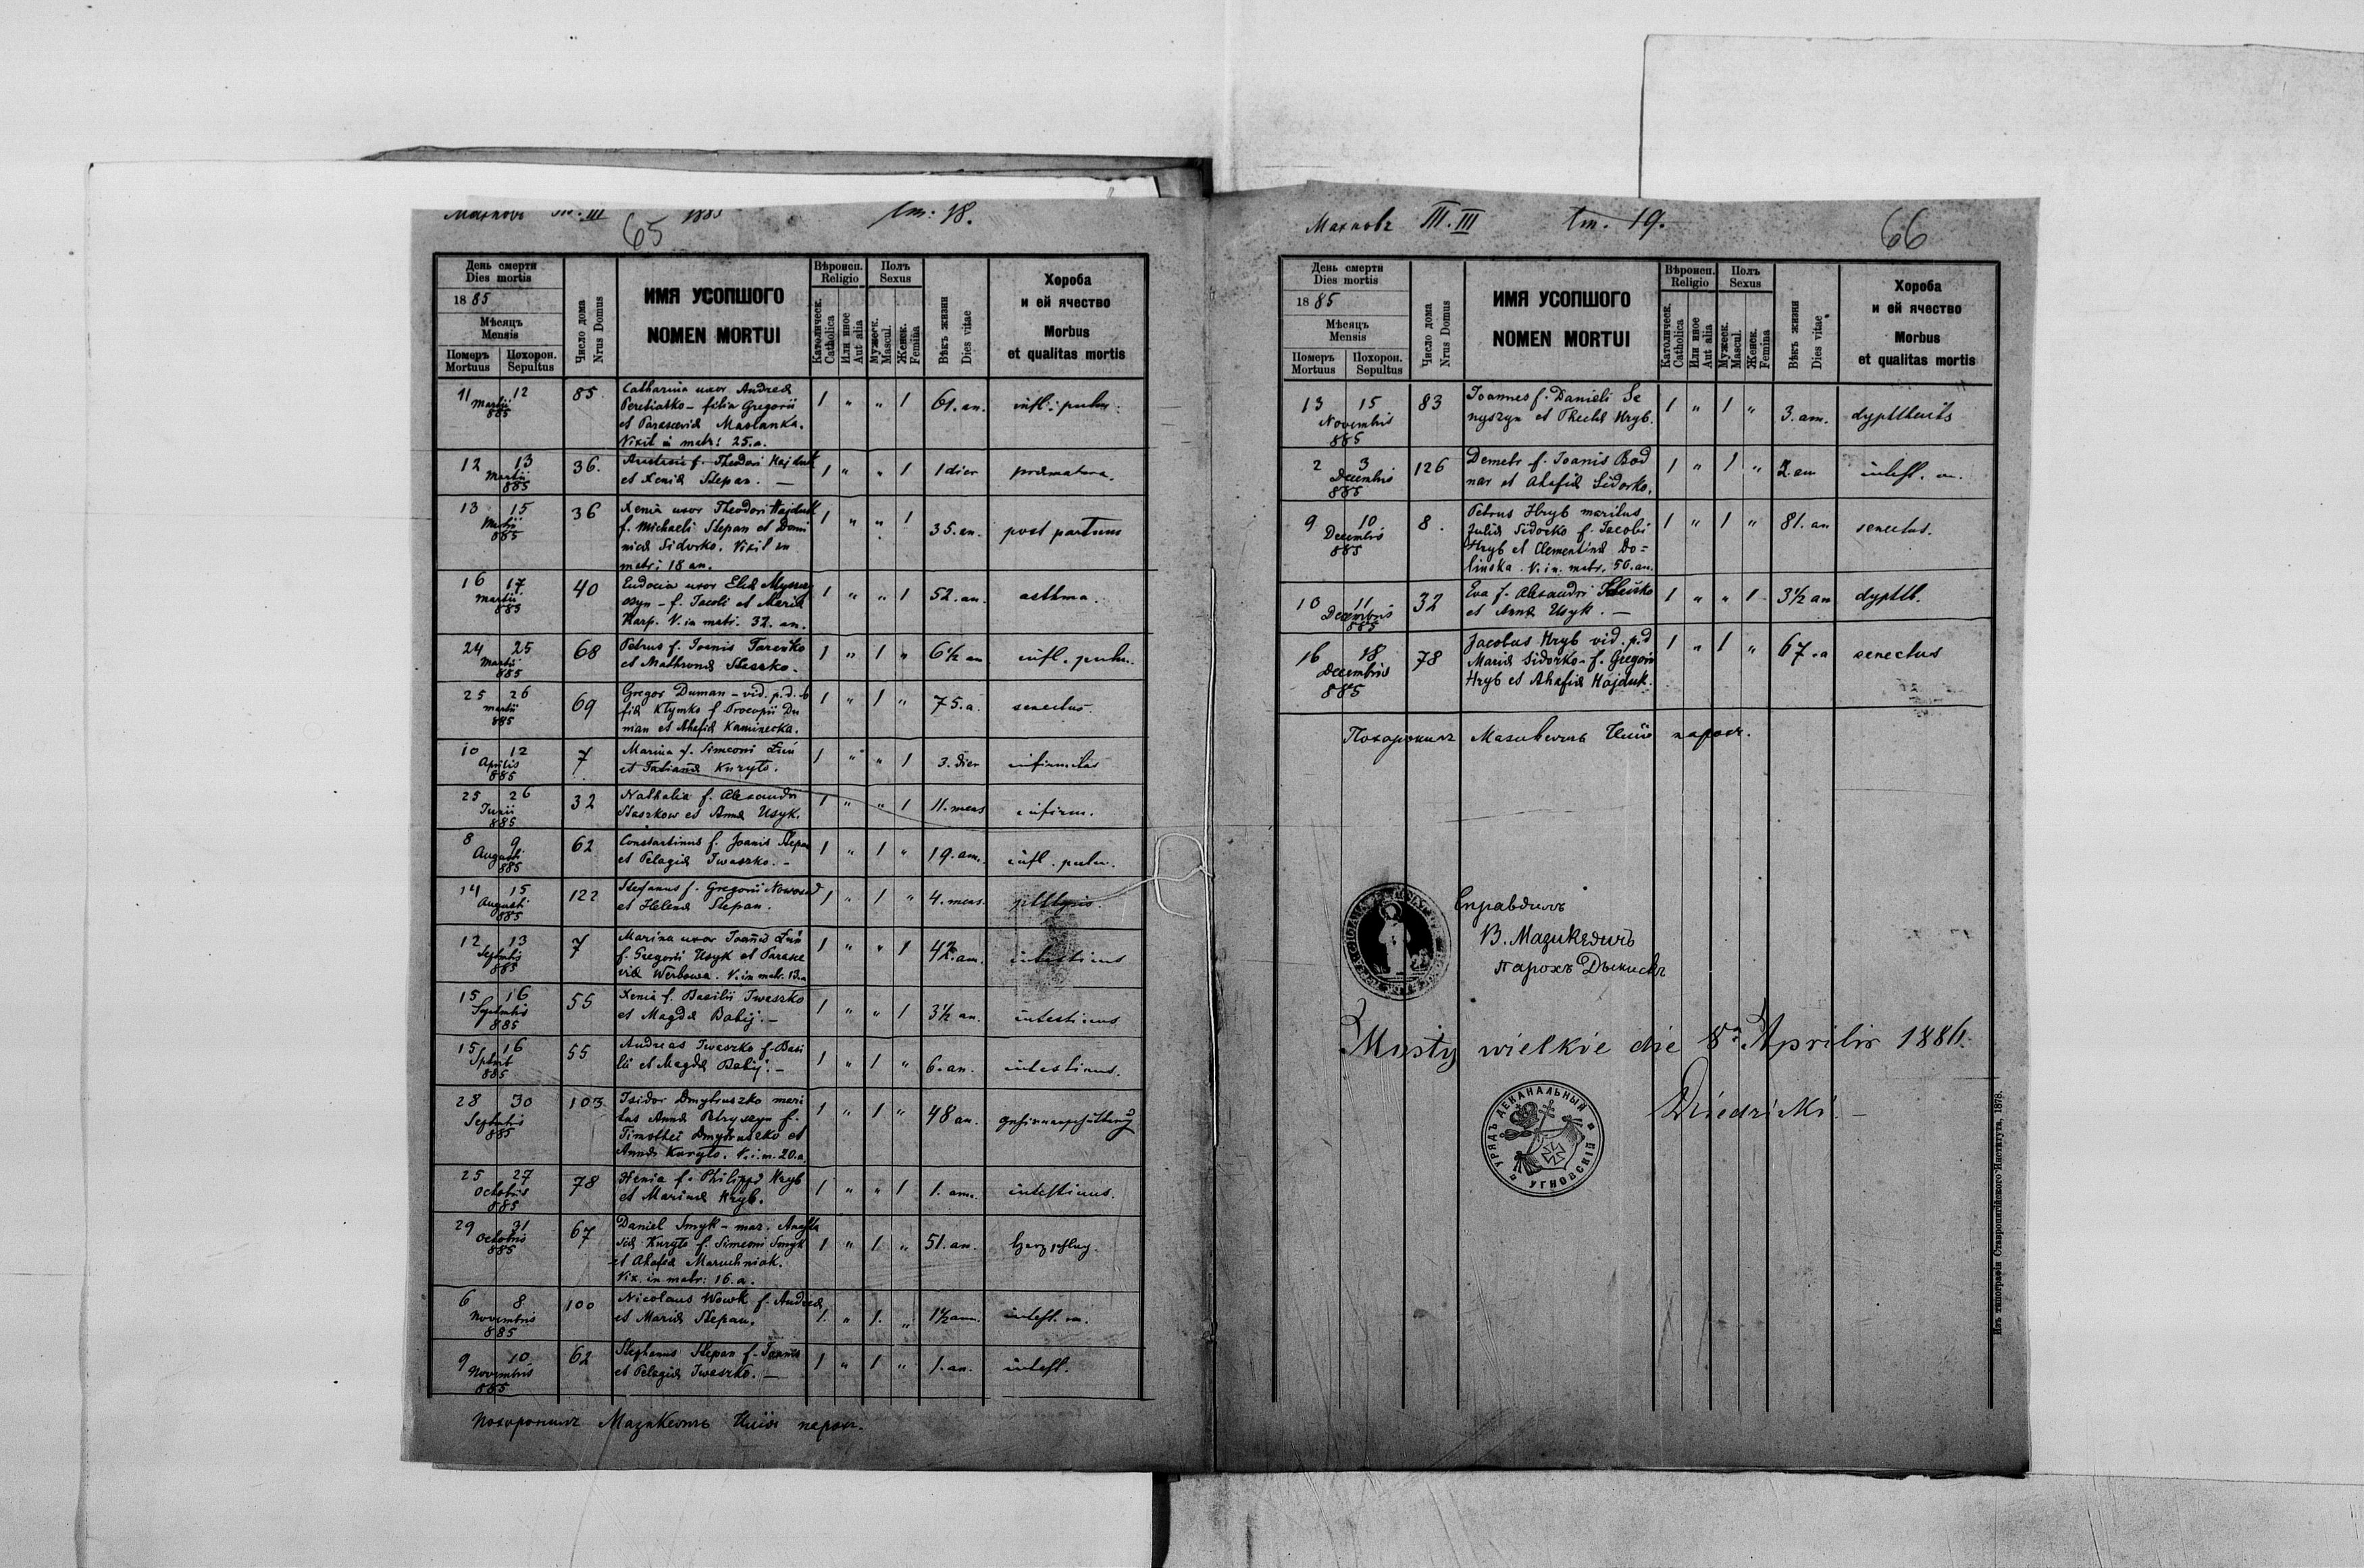 Махновъ III 1885 ст: 18.
65
День смерти
Dies mortis
1885
Мѣсяцъ
Mensis
Померъ
Mortuus
Похорон.
Sepultus
Число дома
Nrus Domus
ИМЯ УСОПШОГО
NOMEN MORTUI
Вѣроисп.
Religio
Католическ.
Catholica
Или иное
Aut alia
Полъ
Sexus
Мужеск.
Mascul.
Женск.
Femina
Вѣкъ жизни
Dies vitae
Хороба
и ей ячество
Morbus
et qualitas mortis
11 12 Martii 885 85 Catharina uxor Andreæ 1 " " 1 61. an. infl: pulm:
Peretiatko - filia Gregorii
et Parasceviæ Maslanka.
Vixit in matr: 25. a.
12 13 Martii 885 36. f. Theodori Hajduk 1 " " 1 1 dier præmatura.
et Xeniæ Stepan. —
13 15 Martii 885 36 Xenia uxor Theodori Hajduk 1 " " 1 35. an. post partum
f. Michaeli Stepan et Domi
nicæ Sidorko. Vixit in
matr: 18 an.
16 17 Martii 885 40 Eudocia uxor Eliæ 1 " " 1 52. an. asthma.
szyn - f. Jacobi et Mariæ
Karp. V. in matr. 32. an.
24 25 Martii 885 68 Petrus f. Joanis 1 " 1 " 6½ an infl. pulm.
et Mathronæ Steszko.
25 26 Martii 885 69 Gregor Duman - vid. p. d. 1 " 1 " 75. a. senectus.
fiæ Klymko f. Procopii Du
man et Ahafiæ Kaminecka.
10 12 Aprilis 885 7 Marina f. Simeoni 1 " " 1 3. dier infirmitas
et Tatianæ Kuryło.
25 26 Junii 885 32 Nathalia f. Alexandri 1 " " 1 11. mens infirm.
Staszkow et Annæ Usyk.
8 9 Augusti 885 62 Constantinus f. Joanis Stepan 1 " 1 " 19. an. infl. pulm.
et Pelagiæ Iwaszko. -
14 15 Augusti 885 122 Stefanus f. Gregorii Nowosad 1 " 1 " 4. mens.
et Helenæ Stepan.
12 13 Septembris 885 7 Marina uxor Joanis 1 " " 1 42. an. intestinus
f. Gregorii Usyk et Parasce
viæ Werbowa. V. in matr. 13. a
15 16 Septembris 885 55 Xenia f. Basilii Iwaszko 1 " " 1 3½ an. intestinus
et Magdæ Babij. —
15 16 Septbr 885 55 Andreas Iwaszko f. Basi 1 " 1 " 6. an. intestinus.
lii et Magdæ Babij. —
28 30 Septembris 885 103 Isidor Dmytruszko mari 1 " 1 " 48 an.
tus Annæ Petryszyn f.
Timothei Dmytruszko et
Annæ Kuryło. V. i. m. 20. a.
25 27 Octobris 885 78 Xenia f. Philippi Hryb 1 " " 1 1. ann. intestinus.
et Marinæ Hryb.
29 31 Octobris 885 67 Daniel Smyk - mar. Anasta 1 " 1. " 51. an. Herzschlag.
siæ Kuryło f. Simeoni Smyk
et Ahafiæ Maruchniak.
Vix. in matr: 16. a.
6 8 Novembris 885 100 Nicolaus Wowk f. Andreæ 1. " 1. " 1½ ann. intest. in.
et Mariæ Stepan.
9 10 Novembris 885 62 Stephanus Stepan f. Joanis 1 " 1 " 1. an. intest.
et Pelagiæ Iwaszko. —
Похоронилъ Мазикевичъ парох.
Махновъ III. III ст. 19.
66
День смерти
Dies mortis
1885
Мѣсяцъ
Mensis
Померъ
Mortuus
Похорон.
Sepultus
Число дома
Nrus Domus
ИМЯ УСОПШОГО
NOMEN MORTUI
Вѣроисп.
Religio
Католическ.
Catholica
Или иное
Aut alia
Полъ
Sexus
Мужеск.
Mascul.
Женск.
Femina
Вѣкъ жизни
Dies vitae
Хороба
и ей ячество
Morbus
et qualitas mortis
13 15 Novembris 885 83 Joannes f. Danieli Se 1 " 1 " 3. ann. dypttheitis
nyszyn et Theclæ Hryb.
2 3 Decembris 885 126 Demetr f. Joanis Bod 1 " 1 " 2. ann intest. in.
nar et Ahafiæ Sidorko.
9 10 Decembris 885 8. Petrus Hryb maritus 1 " 1 " 81. an senectus.
Juliæ Sidorko f. Jacobi
Hryb et Clementinæ Do=
linska. V. in. matr. 56. an.
10 11 Decembris 885 32 Eva f. Alexandri 1 " " 1 3½ an dyptth.
et Annæ Usyk. —
16 18 Decembris 885 78 Jacobus Hryb vid. p. d 1 " 1 " 67. a senectus
Mariæ Sidorko - f. Gregorii
Hryb et Ahafiæ Hajduk.
Похоронилъ Мазикевичъ парох.
Справдилъ
В. Мазикевичъ
парохъ
Mosty wielkie die 8ª Aprilis 1886.
УРЯДЪ ДЕКАНАЛЬНЫЙ УГНОВСКІЙ
Изъ типографіи Ставропигійского Института, 1878.